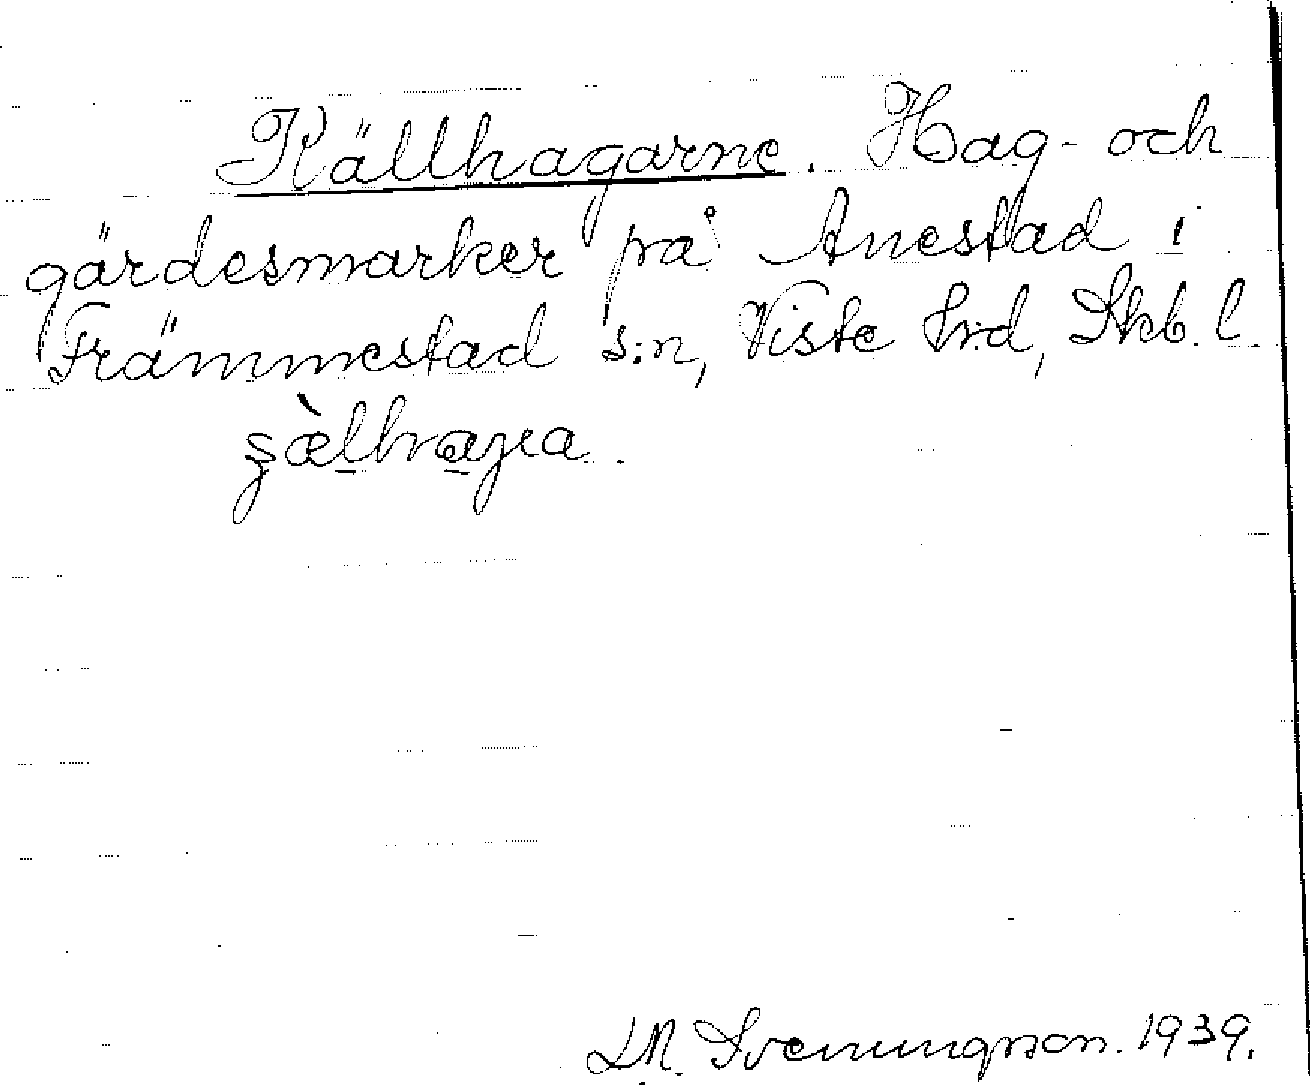 Källhagarne. Hag- och
gärdesmarker på Anestad i
Främmestad s:n, Viste hrd, Skb. l.
Svenungson. 1939.